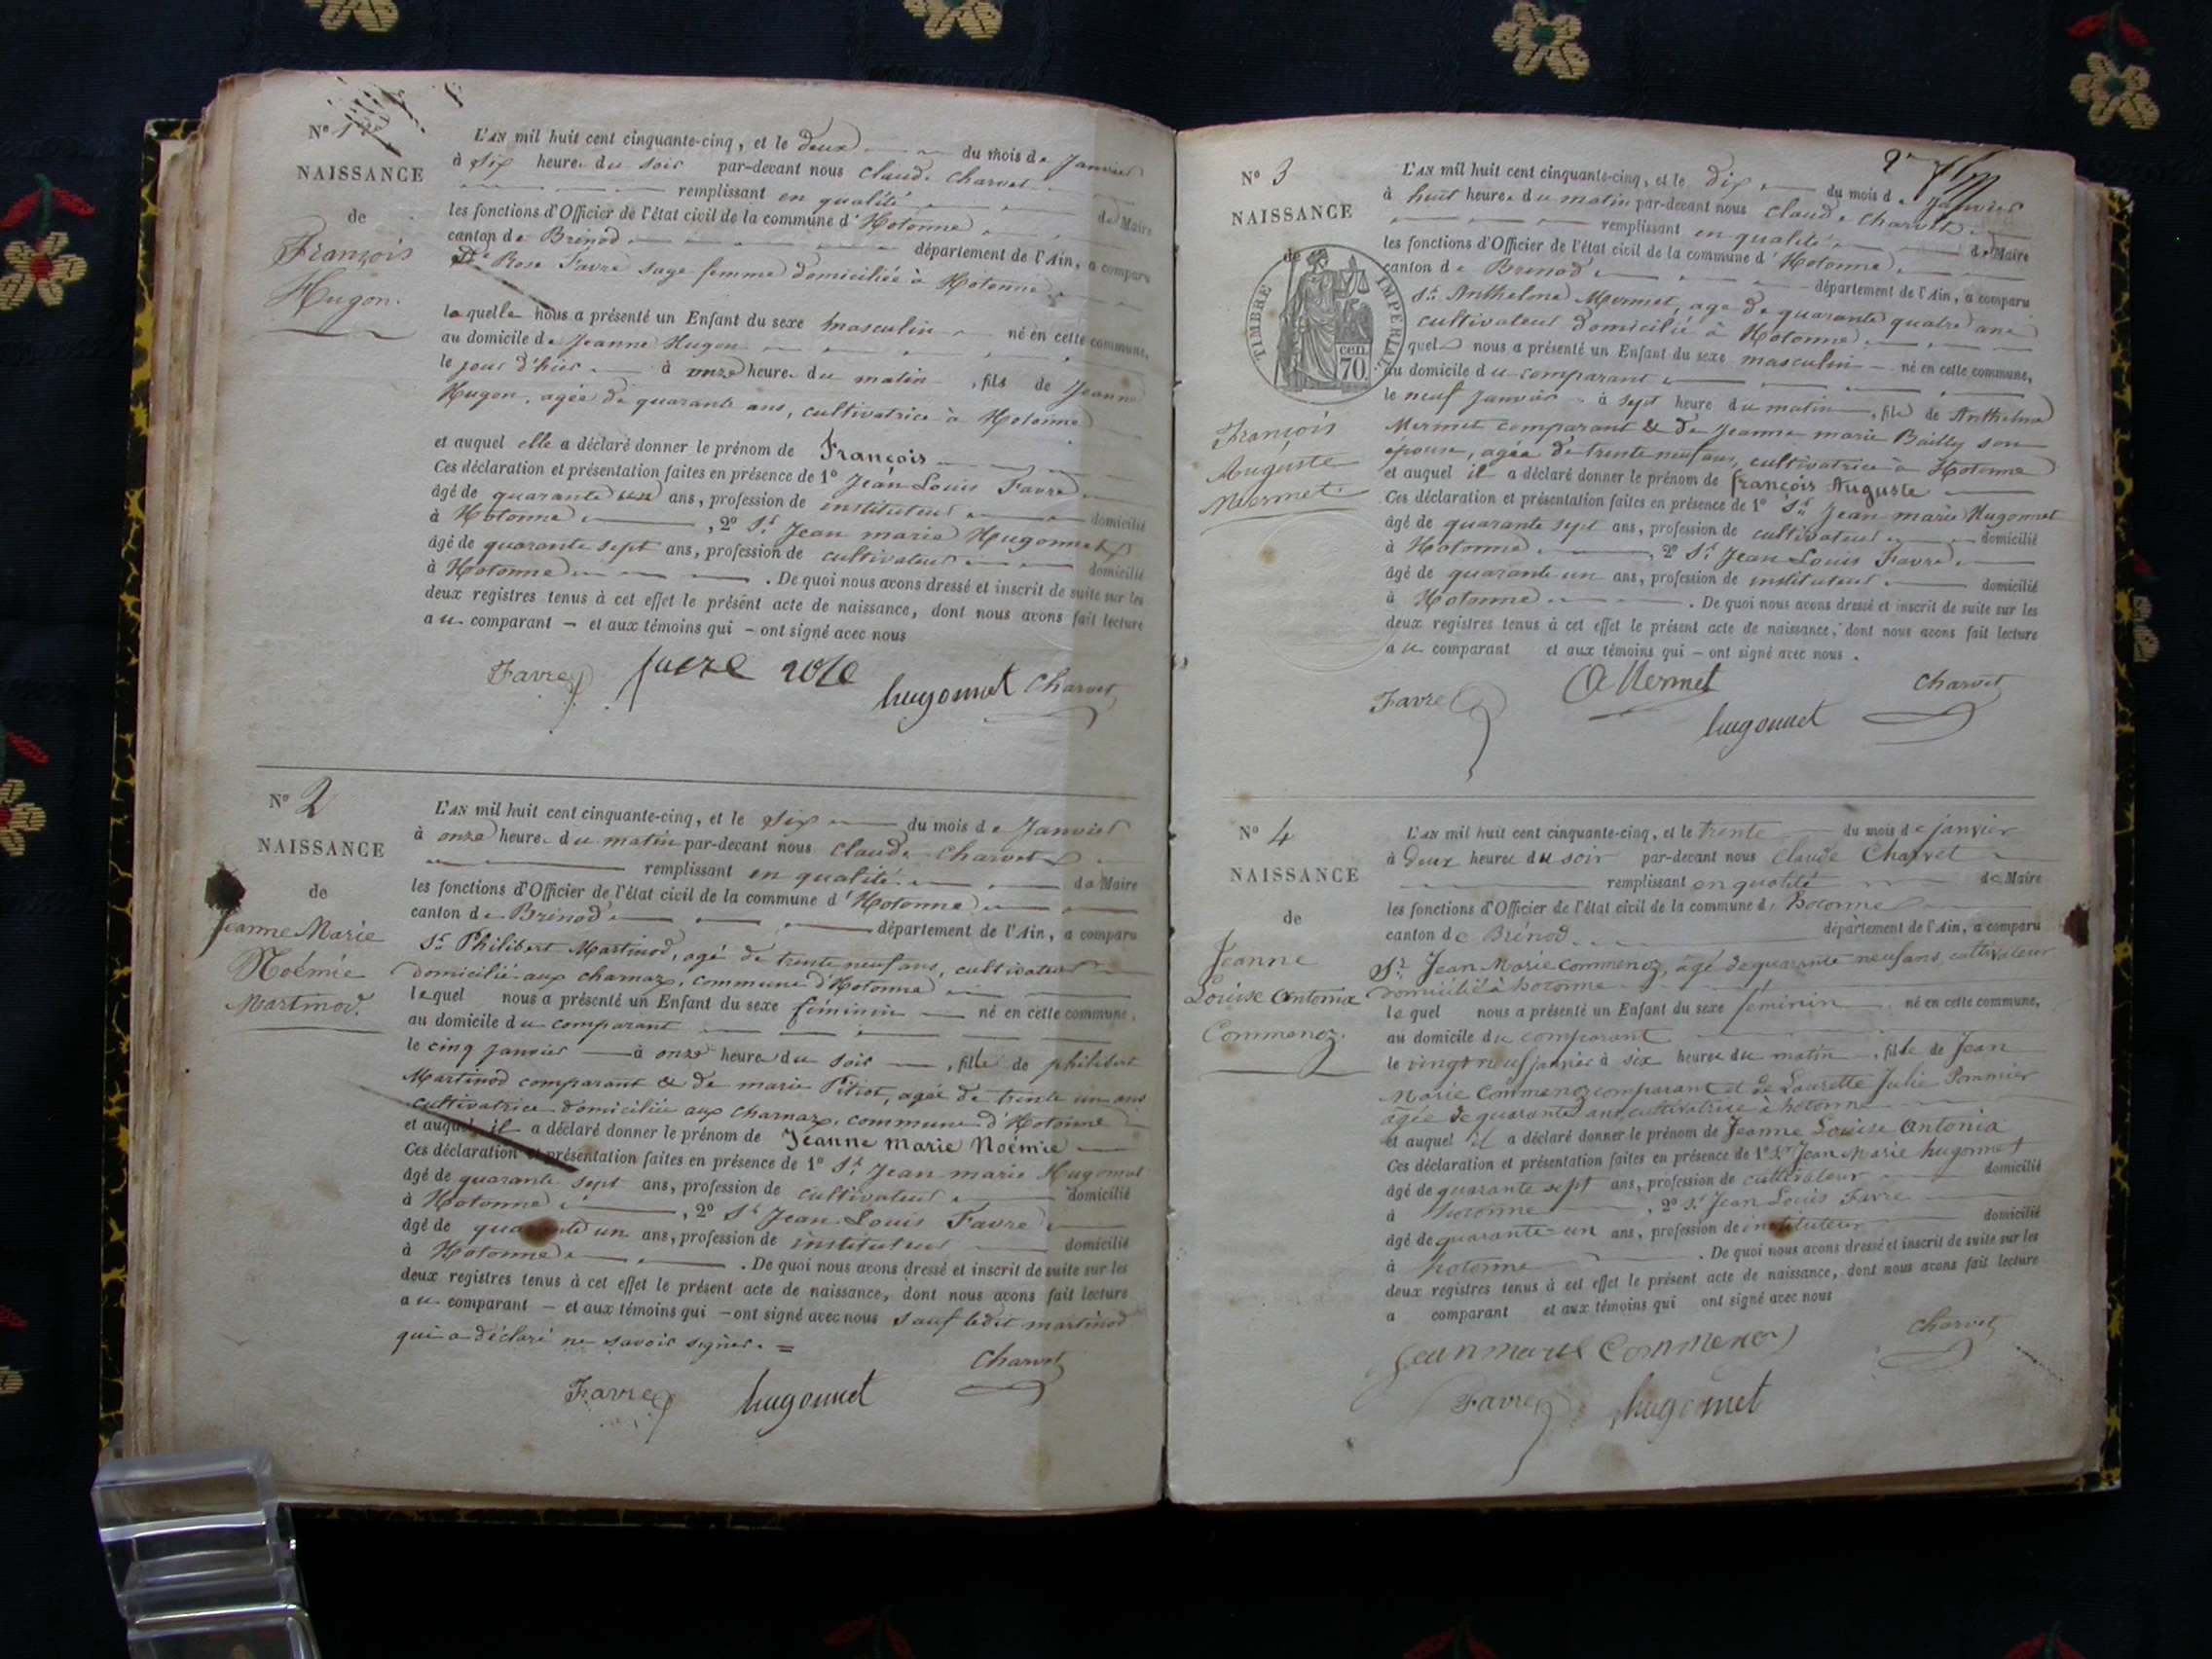 N° 1
NAISSANCE
de
François
Hugon.
L'AN mil huit cent cinquante-cinq, et le deux du mois de Janvier
à six heures du soir par-devant nous Claude Charvet
remplissant en qualité de Maire
les fonctions d'Officier de l'état civil de la commune d'Hotonne
canton de Brénod département de l'Ain, a comparu
Rose Favre sage femme domiciliée à Hotonne
laquelle nous a présenté un Enfant du sexe masculin né en cette commune,
au domicile de Jeanne Hugon
le jour d'hier à onze heures du matin, fils de Jeanne
Hugon, agée de quarante ans, cultivatrice à Hotonne
et auquel elle a déclaré donner le prénom de François
Ces déclaration et présentation faites en présence de 1° Jean Louis Favre
âgé de quarante un ans, profession de instituteur domicilié
à Hotonne, 2° Sr. Jean marie Hugonnet
âgé de quarante sept ans, profession de cultivateur domicilié
à Hotonne. De quoi nous avons dressé et inscrit de suite sur les
deux registres tenus à cet effet le présent acte de naissance, dont nous avons fait lecture
au comparant – et aux témoins qui – ont signé avec nous
Favre favre rose hugonnet Charvet
N° 2
NAISSANCE
de
Jeanne Marie
Noémie
Martinod.
L'AN mil huit cent cinquante-cinq, et le six du mois de Janvier
à onze heures du matin par-devant nous Claude Charvet
remplissant en qualité de Maire
les fonctions d'Officier de l'état civil de la commune d'Hotonne
canton de Brénod département de l'Ain, a comparu
Sr. Philibert Martinod, agé de trente neuf ans, cultivateur
domicilié aux charnaz, commune d'Hotonne
lequel nous a présenté un Enfant du sexe féminin né en cette commune,
au domicile du comparant
le cinq janvier à onze heures du soir, fille de philibert
Martinod comparant & de marie Pitiot, agée de trente un ans
cultivatrice domiciliée aux charnaz, commune d'Hotonne
et auquel il a déclaré donner le prénom de Jeanne marie Noémie
Ces déclaration et présentation faites en présence de 1° Sr. Jean marie Hugonnet
âgé de quarante sept ans, profession de cultivateur domicilié
à Hotonne, 2° Sr Jean Louis Favre
âgé de quarante un ans, profession de instituteur domicilié
à Hotonne. De quoi nous avons dressé et inscrit de suite sur les
deux registres tenus à cet effet le présent acte de naissance, dont nous avons fait lecture
au comparant – et aux témoins qui – ont signé avec nous sauf ledit martinod
qui a déclaré ne savoir signer. =
Favre hugonnet Charvet
N° 3
NAISSANCE
de
TIMBRE IMPÉRIAL
cen.
70
François
Auguste
Mermet.
L'AN mil huit cent cinquante-cinq, et le dix du mois de Janvier
à huit heures du matin par-devant nous Claude Charvet
remplissant en qualité de Maire
les fonctions d'Officier de l'état civil de la commune d'Hotonne
canton de Brénod département de l'Ain, a comparu
Sr. Anthelme Mermet, agé de quarante quatre ans
cultivateur domicilié à Hotonne
quel nous a présenté un Enfant du sexe masculin né en cette commune,
au domicile du comparant
le neuf janvier à sept heure du matin, fils de Anthelme
Mermet comparant & de Jeanne marie Bailly son
épouse, agée de trente neuf ans, cultivatrice à Hotonne
et auquel il a déclaré donner le prénom de François Auguste
Ces déclaration et présentation faites en présence de 1° Sr. Jean marie Hugonnet
âgé de quarante sept ans, profession de cultivateur domicilié
à Hotonne, 2° Sr. Jean Louis Favre
âgé de quarante un ans, profession de instituteur domicilié
à Hotonne. De quoi nous avons dressé et inscrit de suite sur les
deux registres tenus à cet effet le présent acte de naissance, dont nous avons fait lecture
au comparant et aux témoins qui – ont signé avec nous.
Favre A Mermet hugonnet Charvet
N° 4
NAISSANCE
de
Jeanne
Louise Antonia
Commenoz.
L'AN mil huit cent cinquante-cinq, et le trente du mois de janvier
à deux heures du soir par-devant nous Claude Charvet
remplissant en qualité de Maire
les fonctions d'Officier de l'état civil de la commune d'hotonne
canton de Brénod département de l'Ain, a comparu
Sr. Jean Marie Commenoz, âgé de quarante neuf ans, cultivateur
domicilié à hotonne
lequel nous a présenté un Enfant du sexe féminin né en cette commune,
au domicile du comparant
le vingt neuf janvier à six heures du matin, fille de Jean
Marie Commenoz comparant et de Laurette Julie Pommier
âgée de quarante ans, cultivatrice à hotonne
et auquel il a déclaré donner le prénom de Jeanne Louise Antonia
Ces déclaration et présentation faites en présence de 1° Sr Jean Marie hugonnet
âgé de quarante sept ans, profession de cultivateur domicilié
à hotonne, 2° Sr Jean Louis Favre
âgé de quarante-un ans, profession de instituteur domicilié
à hotonne. De quoi nous avons dressé et inscrit de suite sur les
deux registres tenus à cet effet le présent acte de naissance, dont nous avons fait lecture
a comparant et aux témoins qui ont signé avec nous
Jean marie Commenoz Charvet
Favre hugonnet